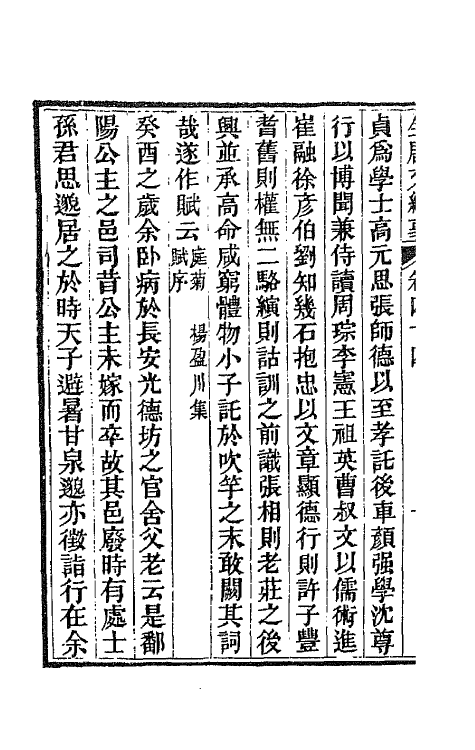 全唐文紀事 卷四十四
貞爲學士高元思張師德以至孝託後車顏强學沈尊
行以博聞兼侍讀周琮李憲王祖英曹叔文以儒術進
崔融徐彥伯劉知幾石抱忠以文章顯德行則許子豐
耆舊則權無二駱縯則詁訓之前識張相則老莊之後
興並承高命咸窮體物小子託於吹竽之末敢闕其詞
哉遂作賦云庭菊賦序 楊盈川集
癸酉之歲余卧病於長安光德坊之官舍父老云是鄱
陽公主之邑司昔公主未嫁而卒故其邑廢時有處士
孫君思邈居之於時天子避暑甘泉邈亦徵詣行在余